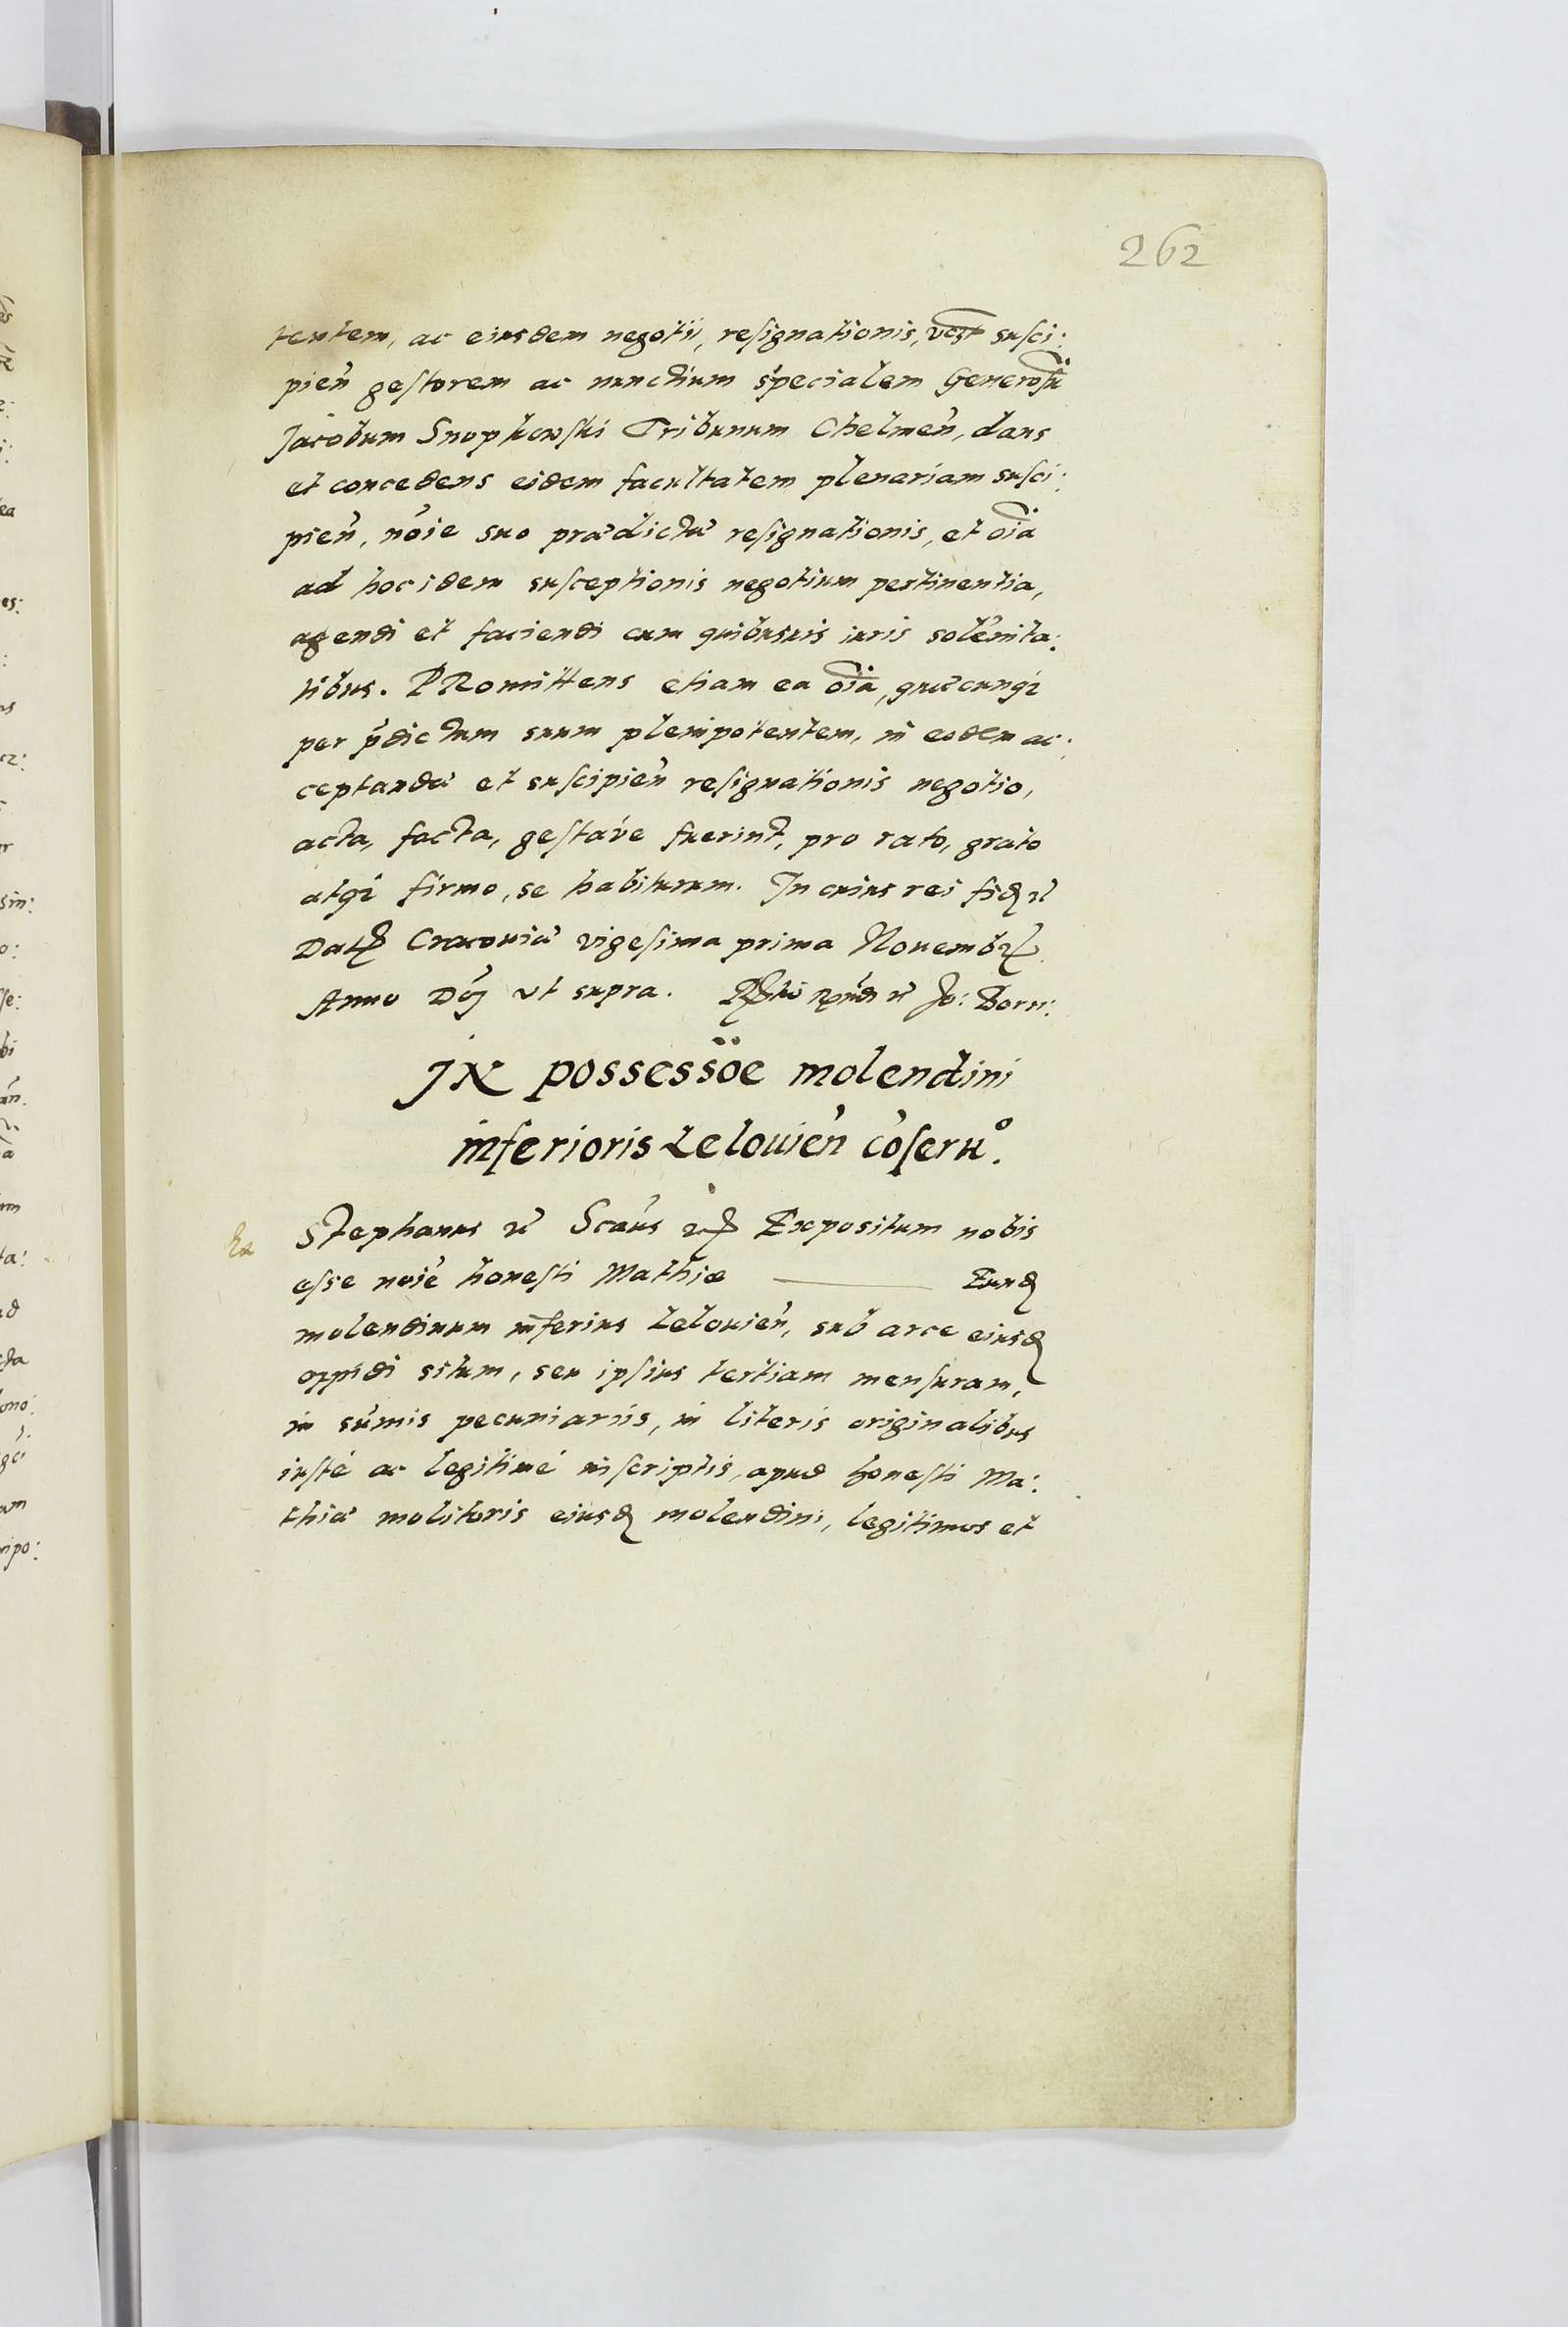 262
tentem, ac eiusdem negotii, resignationis, susci:
pien̄ gestorem ac nunctium specialem Generosū
Jacobum Snopkowski Tribunum Chelmen̄, dans
et concedens eidem facultatem plenariam susci:
pien̄, nōie suo prædictæ resignationis, et oīa
ad hoc idem susceptionis negotium pertinentia,
agendi et faciendi cum quibusuis iuris solēnita:
tibus. PRomittens etiam ea oīa, quæcunqȝ
per p̄dictum suum plenipotentem, in eodem ac:
ceptandæ et suscipien̄ resignationis negotio,
acta, facta, gestáve fuerint, pro rato, grato
atqȝ firmo, se habiturum. In cuius rei fidꝫ
Datꝫ Cracouiæ vigesima prima Nouembrꝭ
Anno Dn̄j vt supra. Jo: Born:
JN possessōe molendini
inferioris Lelouien̄ cōseruº.
Stephanus Scaūs Expositum nobis
esse nōie honesti Mathiæ ——— Eundꝫ
molendinum inferius Lelouien̄, sub arce eiusdꝫ
oppidi situm, seu ipsius tertiam mensuram,
in sūmis pecuniariis, in literis originalibus
iusté ac legitimé inscriptis, apud honesti Ma:
thiæ molitoris eiusdꝫ molendini, legitimos et